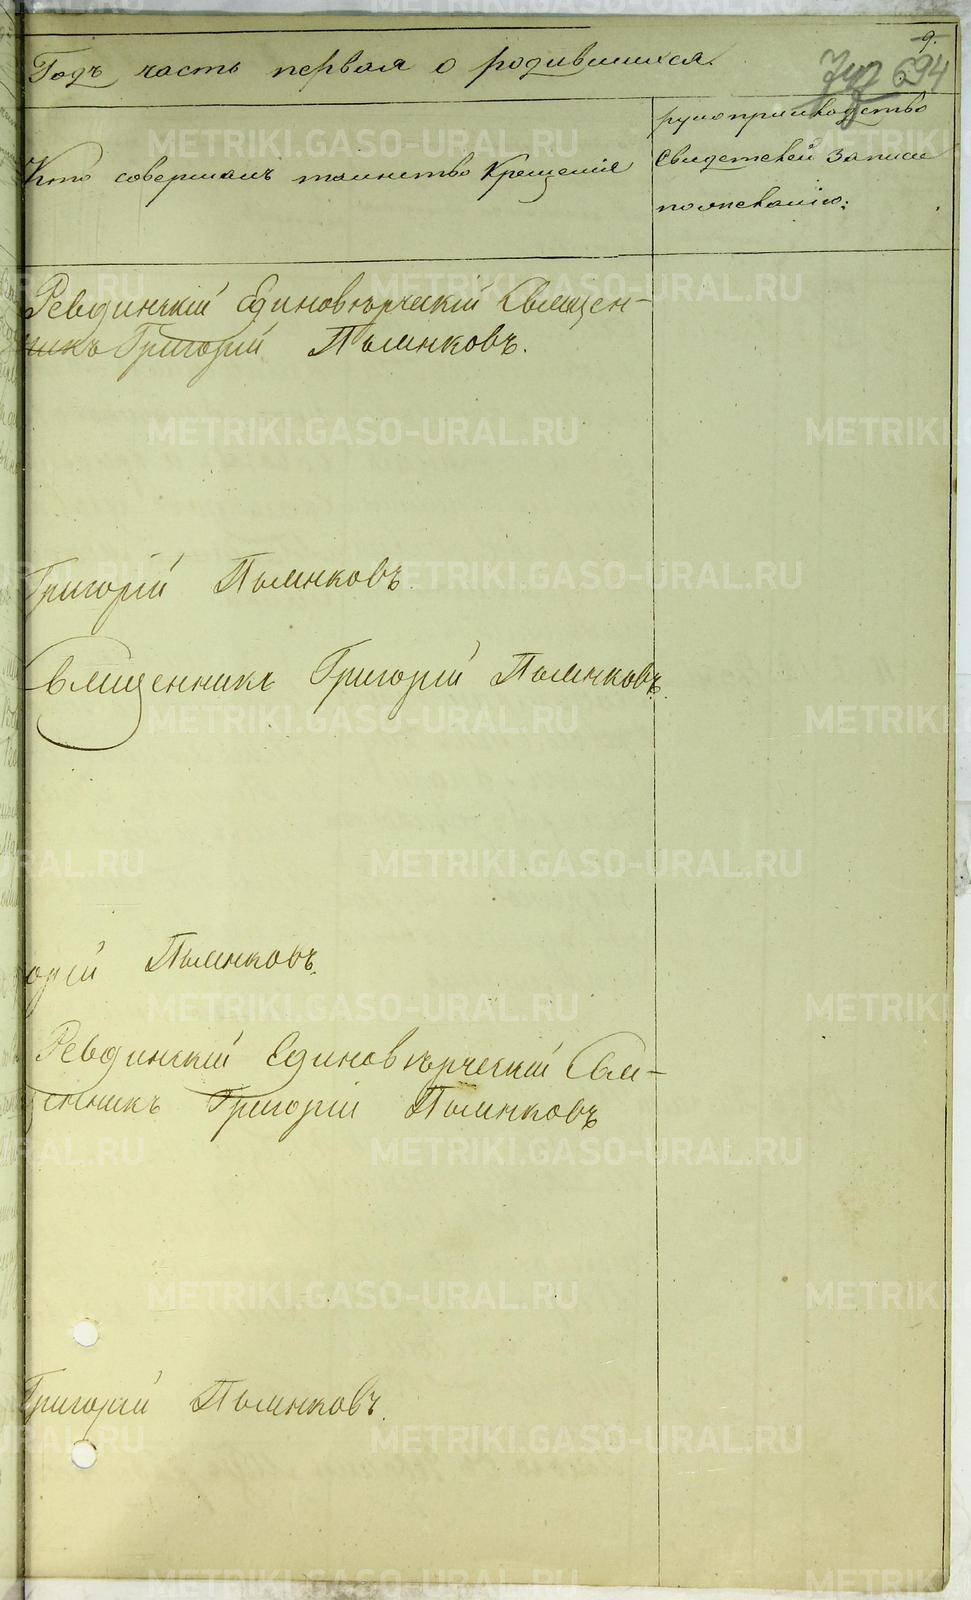 9.
Годъ, часть первая о родившихся.
694
Кто совершалъ таинство Крещенія
рукоприкладство
свидетелей записи
по желанію:
Ревдинскій Единовѣрческій Священ-
никъ Григорій Пьянковъ.
Григорій Пьянковъ.
Священникъ Григорій Пьянковъ.
орій Пьянковъ.
Ревдинскій Единовѣрческій Свя-
щенникъ Григорій Пьянковъ
Григорій Пьянковъ.
METRIKI.GASO-URAL.RU